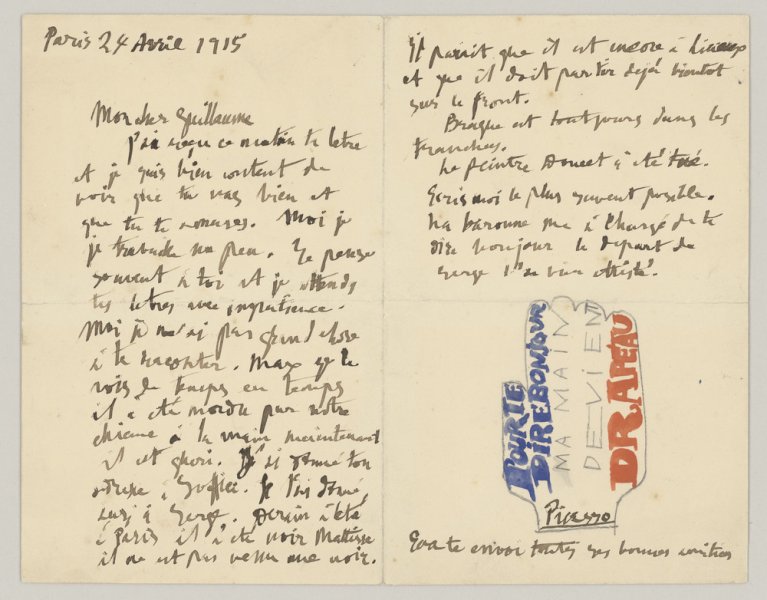 Paris 24 Avril 1915
Mon cher Guillaume
J'ai reçu ce matin ta letre
et je suis bien content de
voir que tu vas bien et
que tu te Moi je
je travaile un peu. Je pense
souvent à toi et je attends
tes letres avec impatience.
Moi je n'ai pas grand chose
à te raconter. Max je le
vois de temps en temps
il a été mordu par notre
chienne à la main maintenant
il est gueri. J'ai donné ton
adresse à Je l'ai donné
aussi à Serge. Derain a été
à Paris il a été voir Matisse
il ne est pas venu me voir.
Il parait que il est encore à Lisieux
et que il doit partir dejá bientot
sur le front.
Braque est toutjours dans les
tranchees.
Le peintre Doucet a eté tué.
Ecris moi le plus souvent posible.
La baronne me a chargé de te
dire bonjour le depart de
Serge l'a bien atristé.
POUR TE
DIRE BONJOUR
MA MAIN
DEVIEN
DRAPEAU
Picasso
Eva te envoi toutes ses bonnes amities